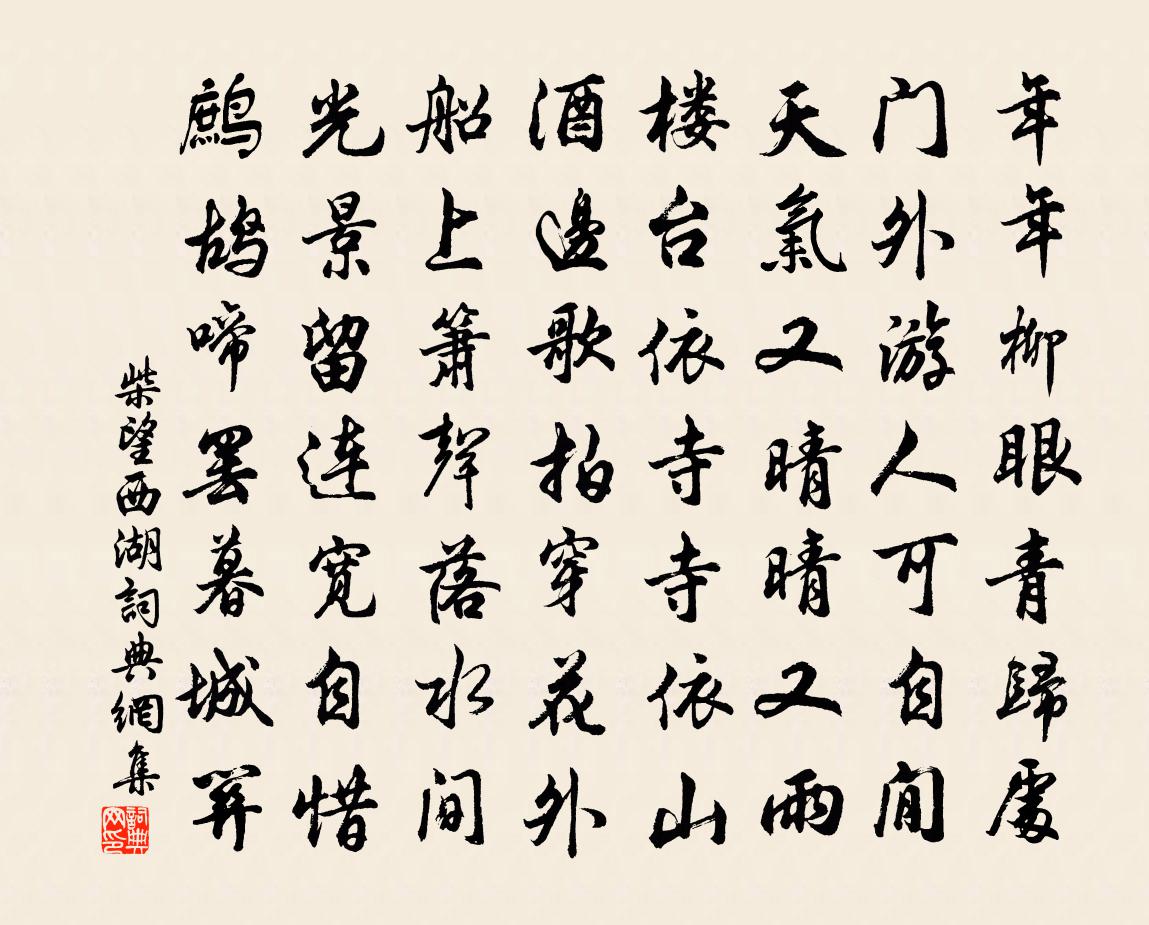 年年柳眼青歸處
门外游人可自閒
天氣又晴晴又雨
楼台依寺寺依山
酒邊歌拍穿花外
船上簫聲落水间
光景留连宽自惜
鷓鴣啼罢暮城關
柴望西湖詞典網集
詞典网印